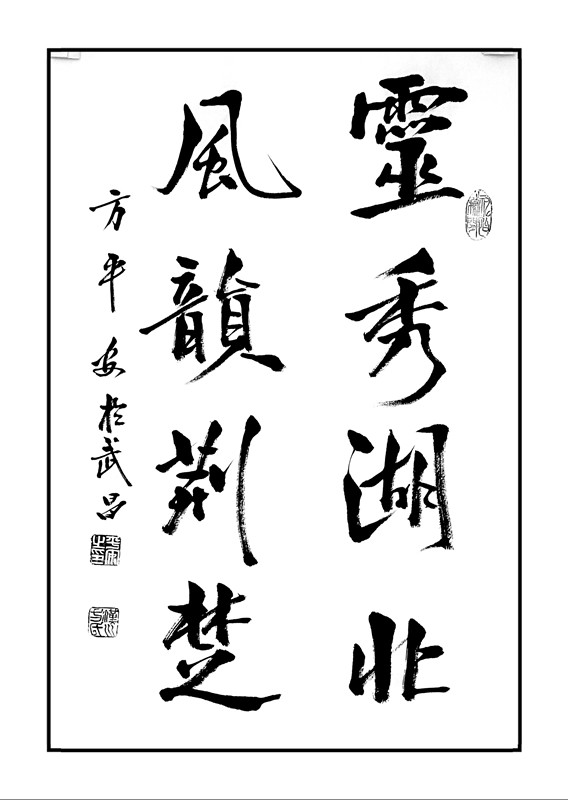 靈秀湖北
風韻荆楚
方平安於武昌